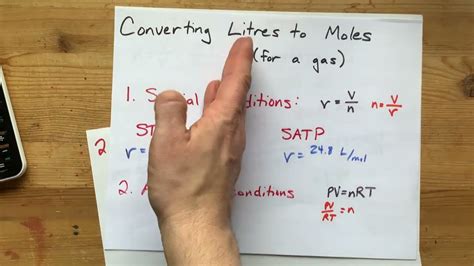 Converting Litres to Moles
(for a gas)
1. S Conditions: v = V/n n = V/v
ST SATP
v= v= 24.8 L/mol
2. A Conditions PV=nRT
PV/RT = n
2